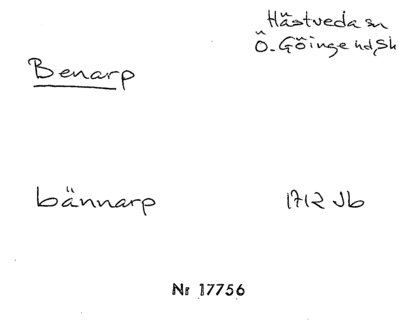 Hästveda sn
Ö. Göinge hd, Sk
Benarp
bännarp 1712 Jb
Nr 17756